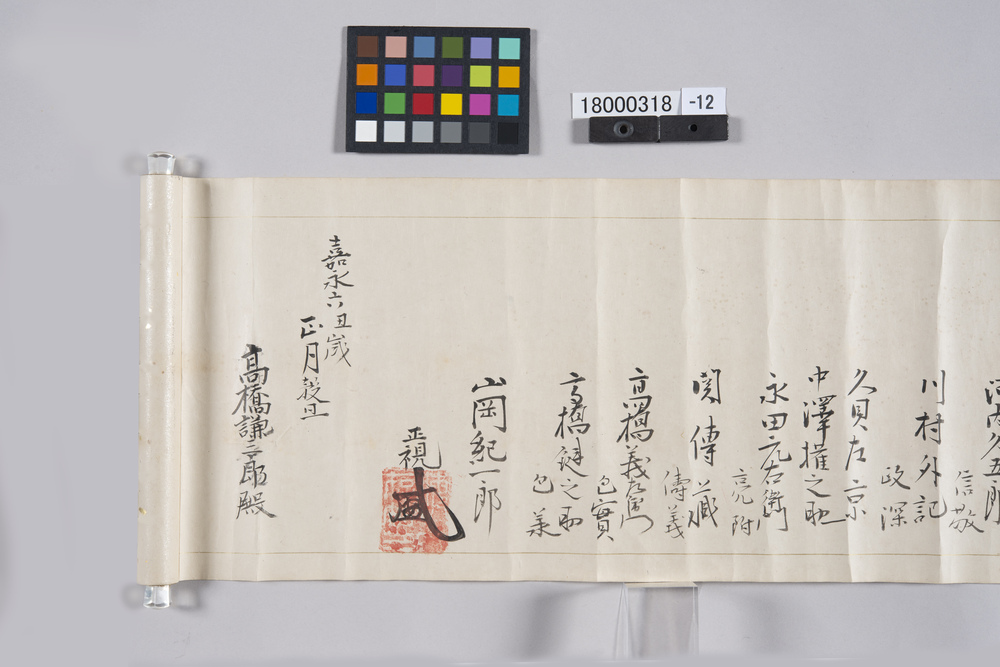 18000318 -12
河内久五郎
信敬
川村外記
政深
久貝左京
中澤權之助
永田元右衛門
亮附
関傳藏
傳義
高橋義左衛門
包實
高橋鍵之助
包業
山岡紀一郎
正視
嘉永六丑歳
正月穀旦
高橋謙三郎殿